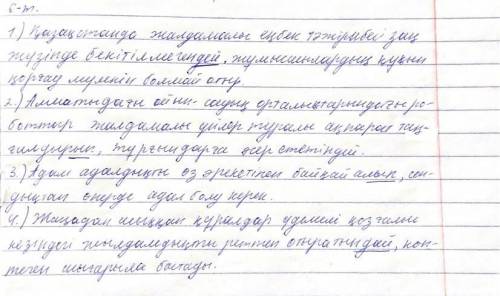 6-т.
1.) Қазақстанда жалдамалы еңбек тәжірибесі заң
жүзінде бекітілмегендей, жұмысшылардың құқын
қорғау мүмкін болмай отыр.
2.) Алматыдағы ойын-сауық орталықтарындағы ро-
боттар жалдамалы үйлер туралы ақпарат таң-
ғалдырып, тұрғындарға әсер ететіндей.
3.) Адам адалдықты өз әрекетінен байқай алып, сон-
дықтан өмірде адал болу керек.
4.) Жаңадан шыққан құралдар үдемелі қозғалыс
кезіндегі жылдамдықты реттеп отыратындай, көп-
теген шығарыла бастады.